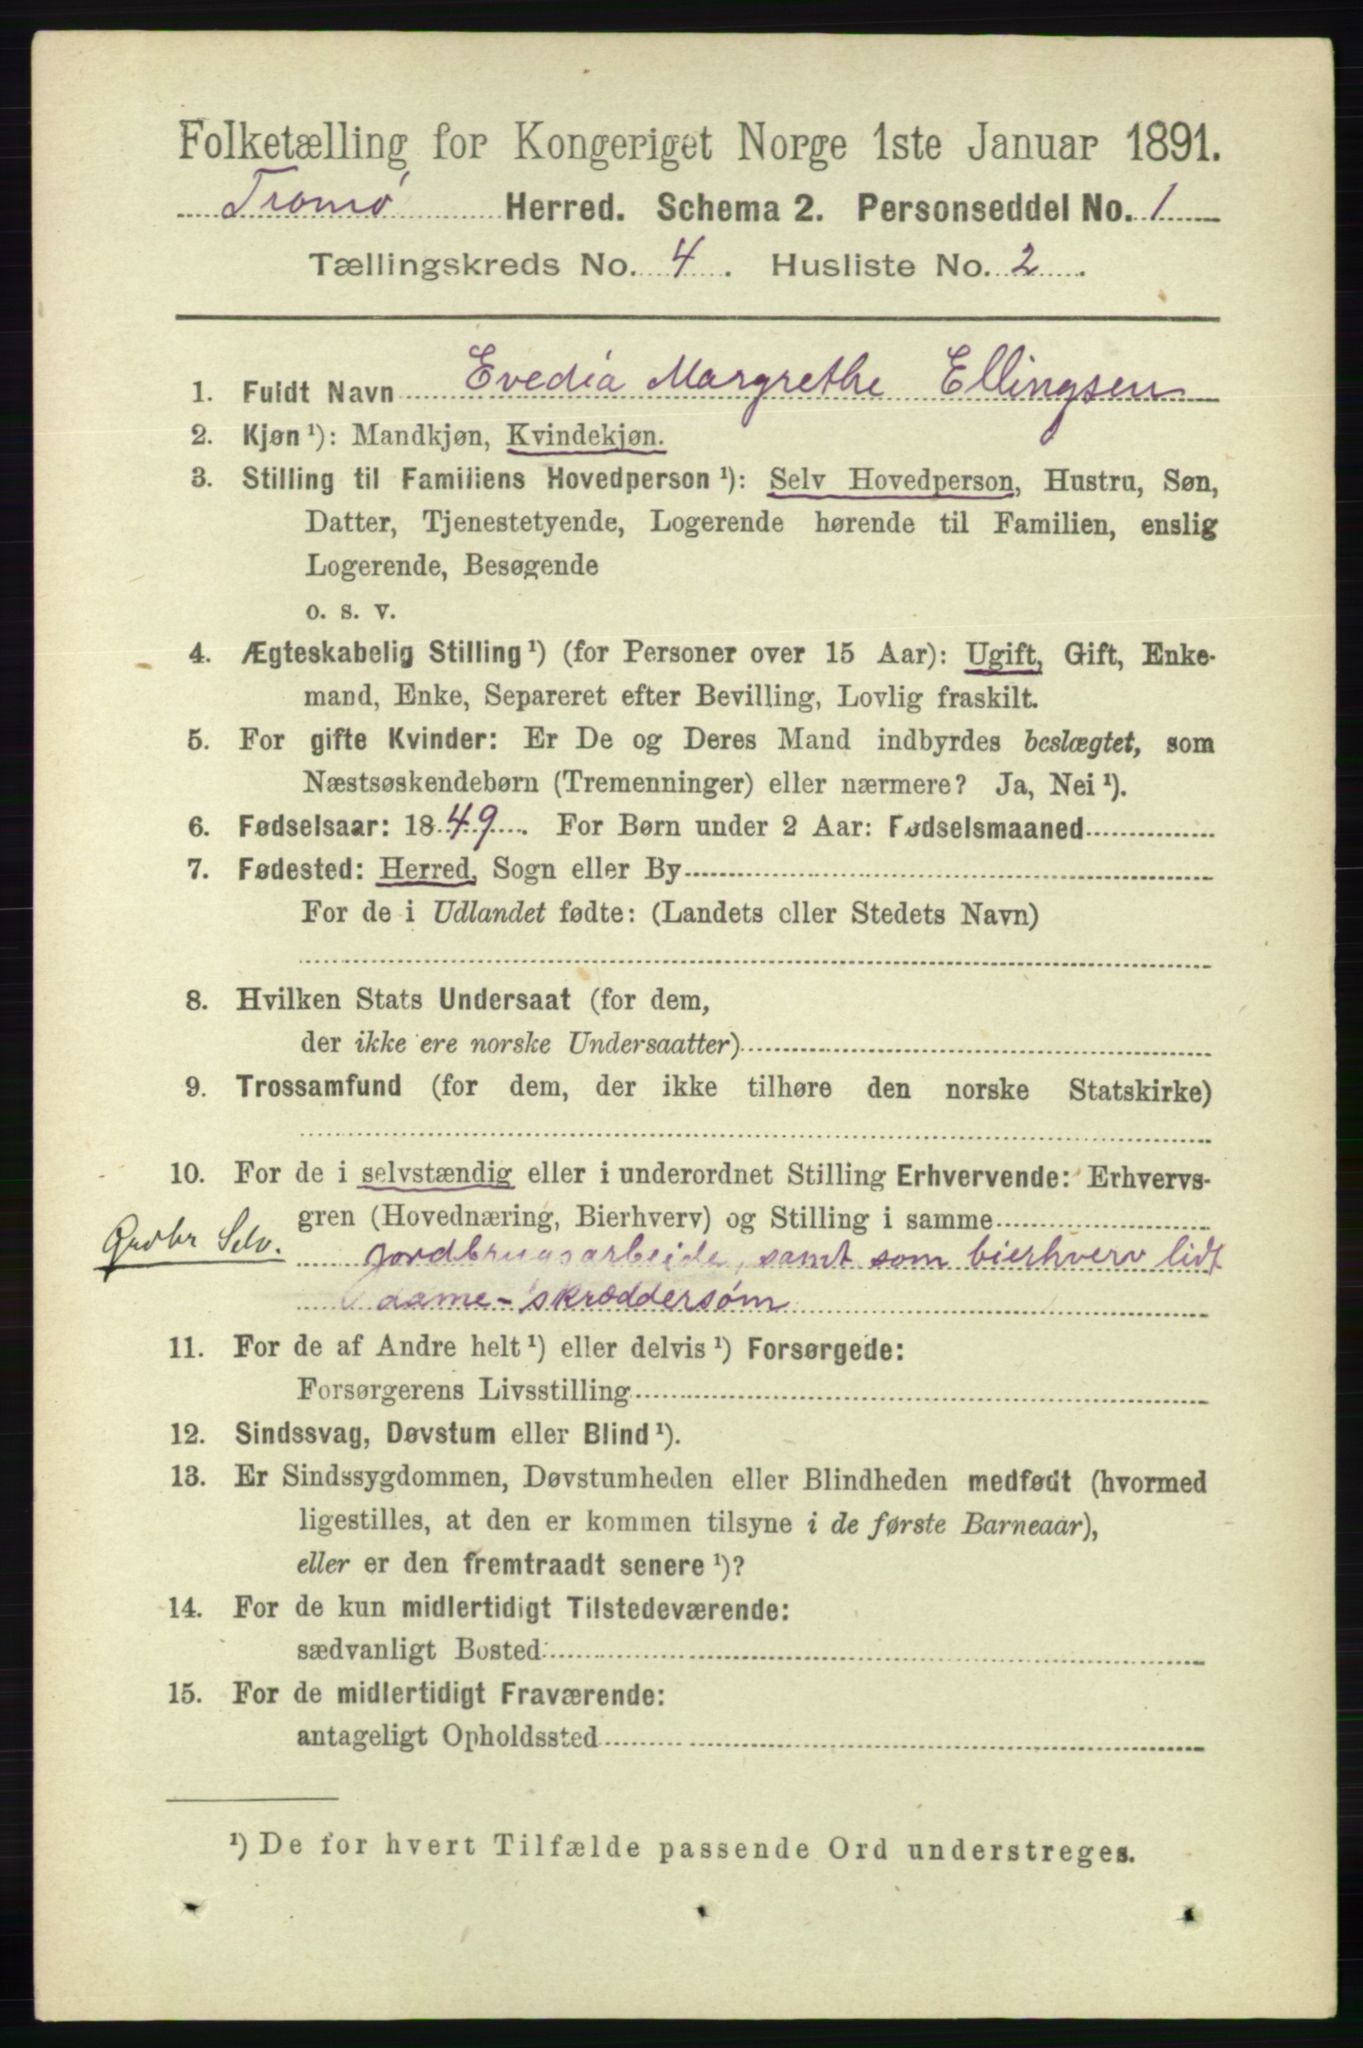 Folketælling for Kongeriget Norge 1ste Januar 1891.
Tromø Herred. Schema 2. Personseddel No. 1
Tællingskreds No. 4. Husliste No. 2.
1. Fuldt Navn Evedia Margrethe Ellingsen
2. Kjøn ¹): Mandkjøn, Kvindekjøn.
3. Stilling til Familiens Hovedperson ¹): Selv Hovedperson, Hustru, Søn,
Datter, Tjenestetyende, Logerende hørende til Familien, enslig
Logerende, Besøgende
o. s. v.
4. Ægteskabelig Stilling ¹) (for Personer over 15 Aar): Ugift, Gift, Enke-
mand, Enke, Separeret efter Bevilling, Lovlig fraskilt.
5. For gifte Kvinder: Er De og Deres Mand indbyrdes beslægtet, som
Næstsøskendebørn (Tremenninger) eller nærmere? Ja, Nei ¹).
6. Fødselsaar: 1849. For Børn under 2 Aar: Fødselsmaaned
7. Fødested: Herred, Sogn eller By
For de i Udlandet fødte: (Landets eller Stedets Navn)
8. Hvilken Stats Undersaat (for dem,
der ikke ere norske Undersaatter)
9. Trossamfund (for dem, der ikke tilhøre den norske Statskirke)
10. For de i selvstændig eller i underordnet Stilling Erhvervende: Erhvervs-
gren (Hovednæring, Bierhverv) og Stilling i samme
Grdbr Selv. Jordbrugsarbeide, samt som bierhverv lidt
dame-skræddersøm
11. For de af Andre helt ¹) eller delvis ¹) Forsørgede:
Forsørgerens Livsstilling
12. Sindssvag, Døvstum eller Blind ¹).
13. Er Sindssygdommen, Døvstumheden eller Blindheden medfødt (hvormed
ligestilles, at den er kommen tilsyne i de første Barneaar),
eller er den fremtraadt senere ¹)?
14. For de kun midlertidigt Tilstedeværende:
sædvanligt Bosted
15. For de midlertidigt Fraværende:
antageligt Opholdssted
¹) De for hvert Tilfælde passende Ord understreges.